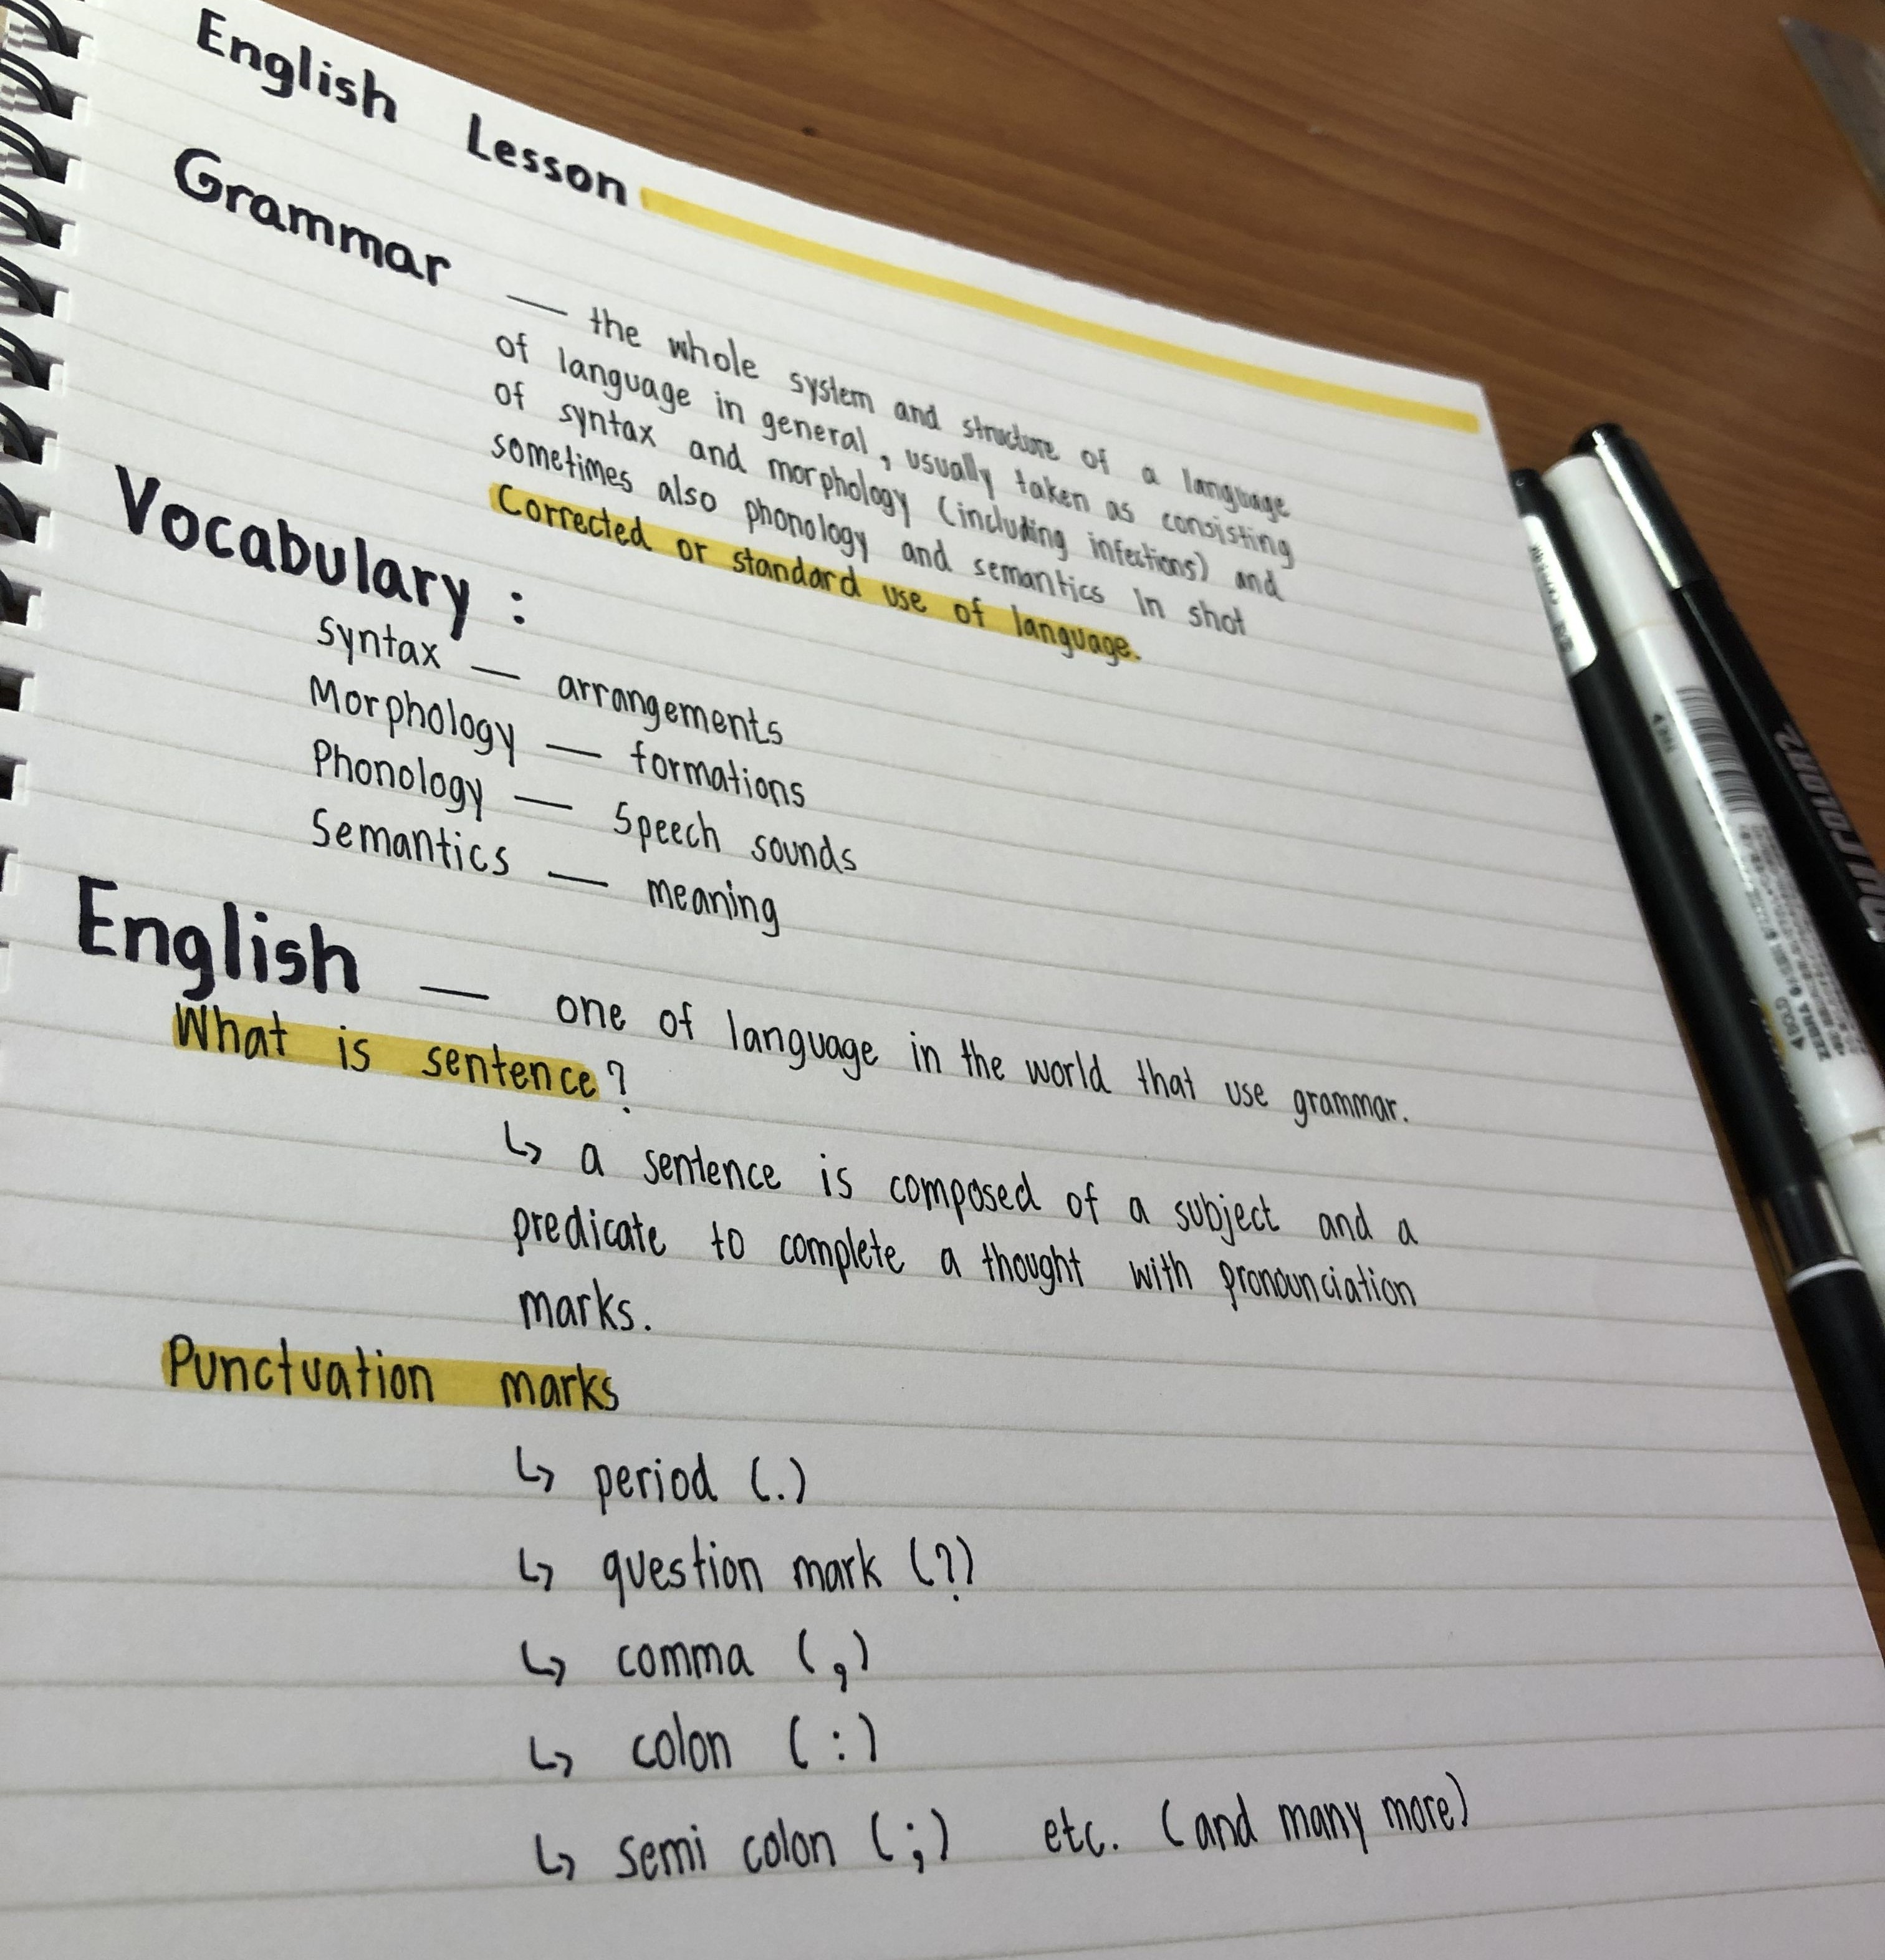 English Lesson
Grammar — the whole system and structure of a language
of language in general, usually taken as consisting
of syntax and morphology (including infections) and
sometimes also phonology and semantics In shot
Corrected or standard use of language.
Vocabulary :
syntax — arrangements
Morphology — formations
Phonology — Speech sounds
Semantics — meaning
English — one of language in the world that use grammar.
What is sentence?
↳ a sentence is composed of a subject and a
predicate to complete a thought with pronounciation
marks.
Punctuation marks
↳ period (.)
↳ question mark (?)
↳ comma (,)
↳ colon (:)
↳ semi colon (;) etc. (and many more)
ZEBRA